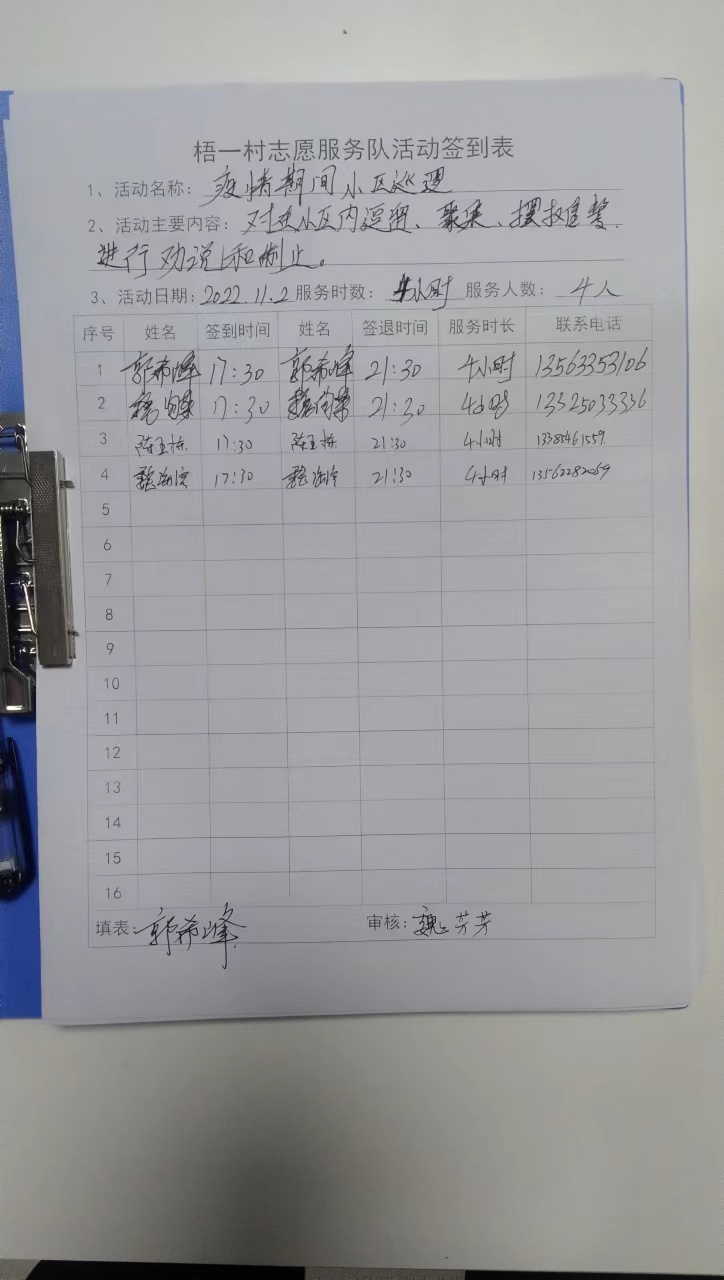 梧一村志愿服务队活动签到表
1、活动名称：疫情期间小区巡逻
2、活动主要内容：对在小区内逗留、聚集、摆
进行劝说和制止。
3、活动日期：2022.11.2 服务时数：4小时 服务人数：4人
序号 姓名 签到时间 姓名 签退时间 服务时长 联系电话
1 郭希峰 17:30 郭希峰 21:30 4小时 13563353106
2 17:30 21:30 4小时 13325033336
3 陈玉栋 17:30 陈玉栋 21:30 4小时 13385461559
4 17:30 21:30 4小时 13562282059
5
6
7
8
9
10
11
12
13
14
15
16
填表：郭希峰 审核：魏芳芳